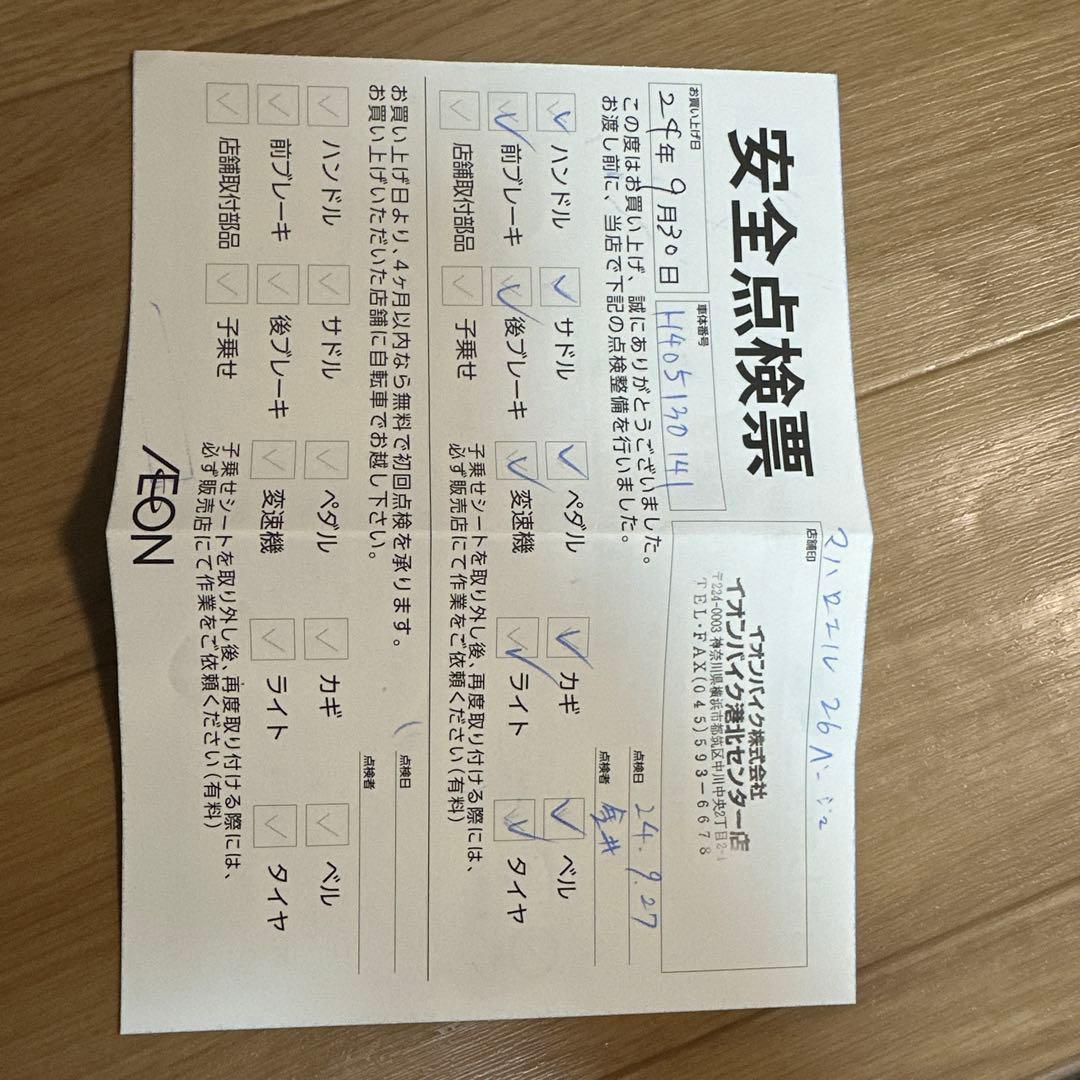 安全点検票
マハロエール 26 ベージュ
お買い上げ日
24年 9月30日
車体番号
H405130141
店舗印
イオンバイク株式会社
イオンバイク港北センター店
〒224-0003 神奈川県横浜市都筑区中川中央2丁目2-1
TEL・FAX(045)593-6678
この度はお買い上げ、誠にありがとうございました。
お渡し前に、当店で下記の点検整備を行いました。
点検日 24.9.27
点検者
ハンドル サドル ペダル カギ ベル
前ブレーキ 後ブレーキ 変速機 ライト タイヤ
店舗取付部品 子乗せ
子乗せシートを取り外し後、再度取り付ける際には、
必ず販売店にて作業をご依頼ください(有料)
お買い上げ日より、4ヶ月以内なら無料で初回点検を承ります。
お買い上げいただいた店舗に自転車でお越し下さい。
点検日
点検者
ハンドル サドル ペダル カギ ベル
前ブレーキ 後ブレーキ 変速機 ライト タイヤ
店舗取付部品 子乗せ
子乗せシートを取り外し後、再度取り付ける際には、
必ず販売店にて作業をご依頼ください(有料)
ÆON